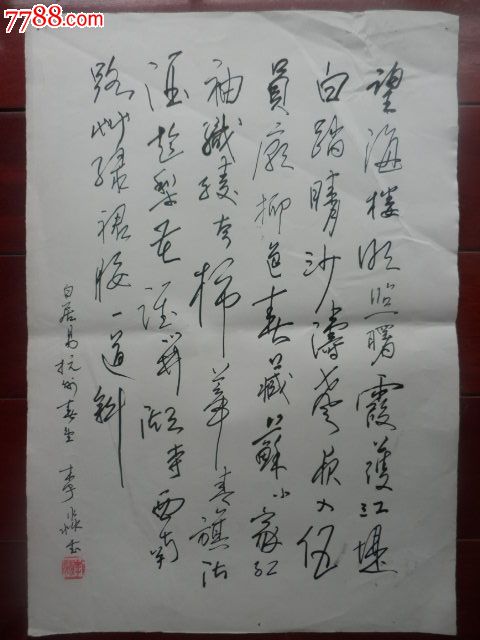 7788.com
望海楼明照曙霞護江堤
白踏晴沙濤聲夜入伍
員廟柳色春藏蘇小家红
袖織綾夸柿蒂青旗沽
酒趁梨花谁開湖寺西南
路草绿裙腰一道斜
白居易杭州春望 李书